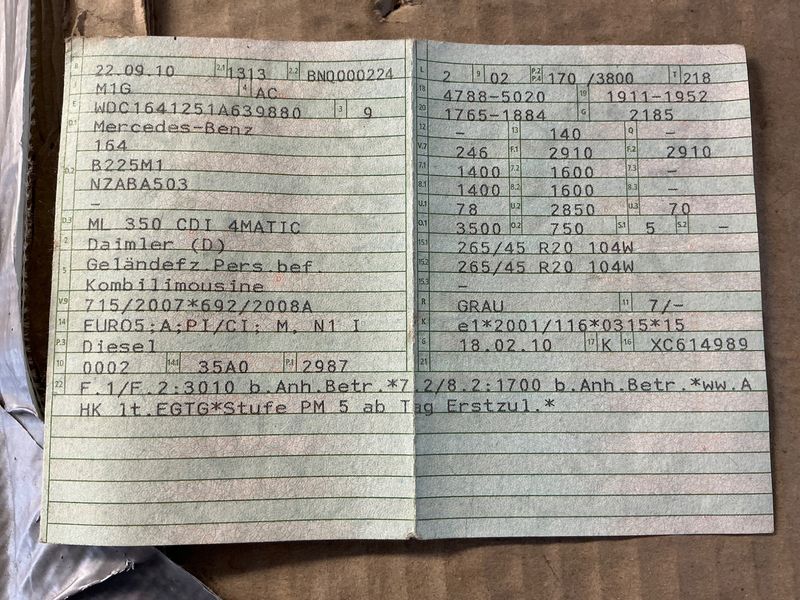 B 22.09.10 2.1 1313 2.2 BNQ000224
J M1G 4 AC
E WDC1641251A639880 3 9
D.1 Mercedes-Benz
164
D.2 B225M1
NZABA503
–
D.3 ML 350 CDI 4MATIC
2 Daimler (D)
5 Geländefz.Pers.bef.
Kombilimousine
V.9 715/2007*692/2008A
14 EURO5;A;PI/CI; M, N1 I
P.3 Diesel
10 0002 14.1 35A0 P.1 2987
L 2 9 02 P.2 P.4 170 /3800 T 218
18 4788-5020 19 1911-1952
20 1765-1884 G 2185
12 – 13 140 Q –
V.7 246 F.1 2910 F.2 2910
7.1 1400 7.2 1600 7.3 –
8.1 1400 8.2 1600 8.3 –
U.1 78 U.2 2850 U.3 70
O.1 3500 O.2 750 S.1 5 S.2 –
15.1 265/45 R20 104W
15.2 265/45 R20 104W
15.3 –
R GRAU 11 7/–
K e1*2001/116*0315*15
6 18.02.10 17 K 16 XC614989
21
22 F.1/F.2:3010 b.Anh.Betr.*7.2/8.2:1700 b.Anh.Betr.*ww.A
HK lt.EGTG*Stufe PM 5 ab Tag Erstzul.*